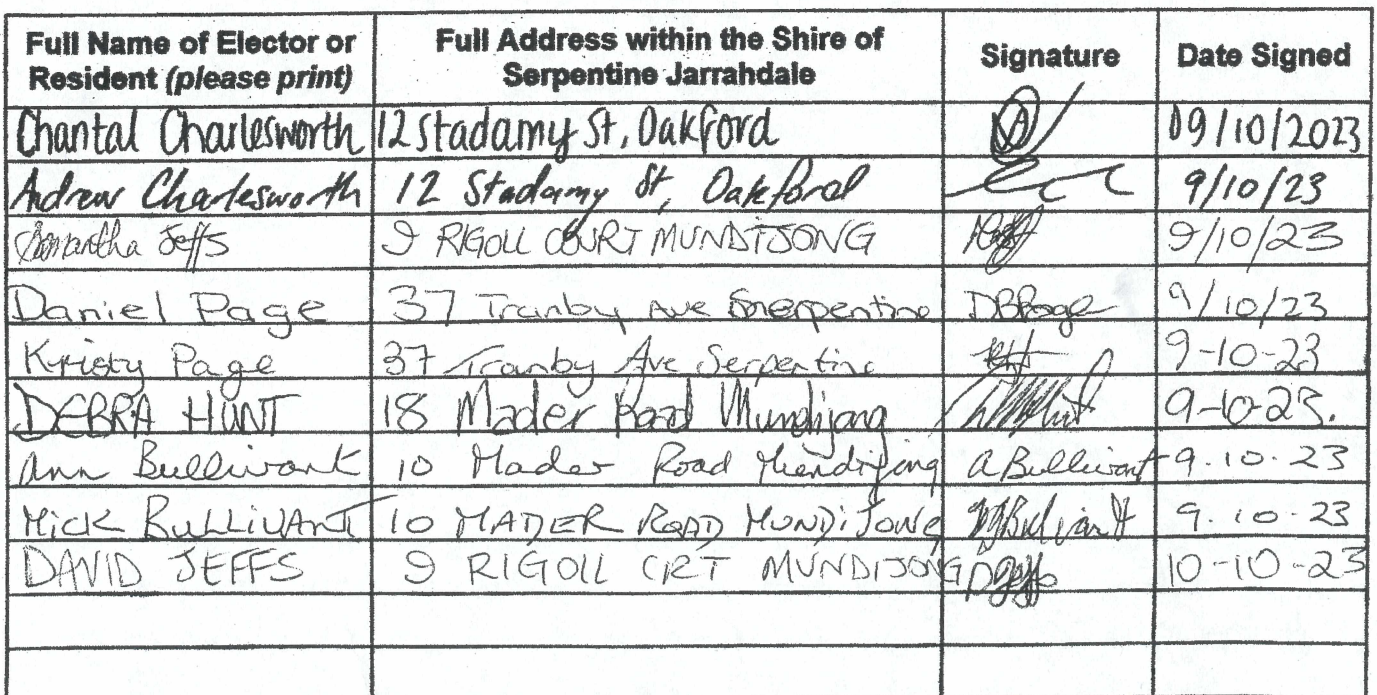 Full Name of Elector or Resident (please print) Full Address within the Shire of Serpentine Jarrahdale Signature Date Signed
Chantal Charlesworth 12 Stadamy St, Oakford 09/10/2023
Andrew Charlesworth 12 Stadamy St, Oakford 9/10/23
Samantha Jeffs 9 RIGOLL COURT MUNDIJONG 9/10/23
Daniel Page 37 Tranby Ave Serpentine DBPage 9/10/23
Kristy Page 37 Tranby Ave Serpentine 9-10-23
DEBRA HUNT 18 Mader Road Mundijong 9-10-23.
Ann Bullivant 10 Mader Road Mundijong A Bullivant 9.10.23
Mick BULLiVANT 10 MADER ROAD MUNDiJONG MJBullivant 9.10.23
DAVID JEFFS 9 RIGOLL CRT MUNDIJONG 10-10-23